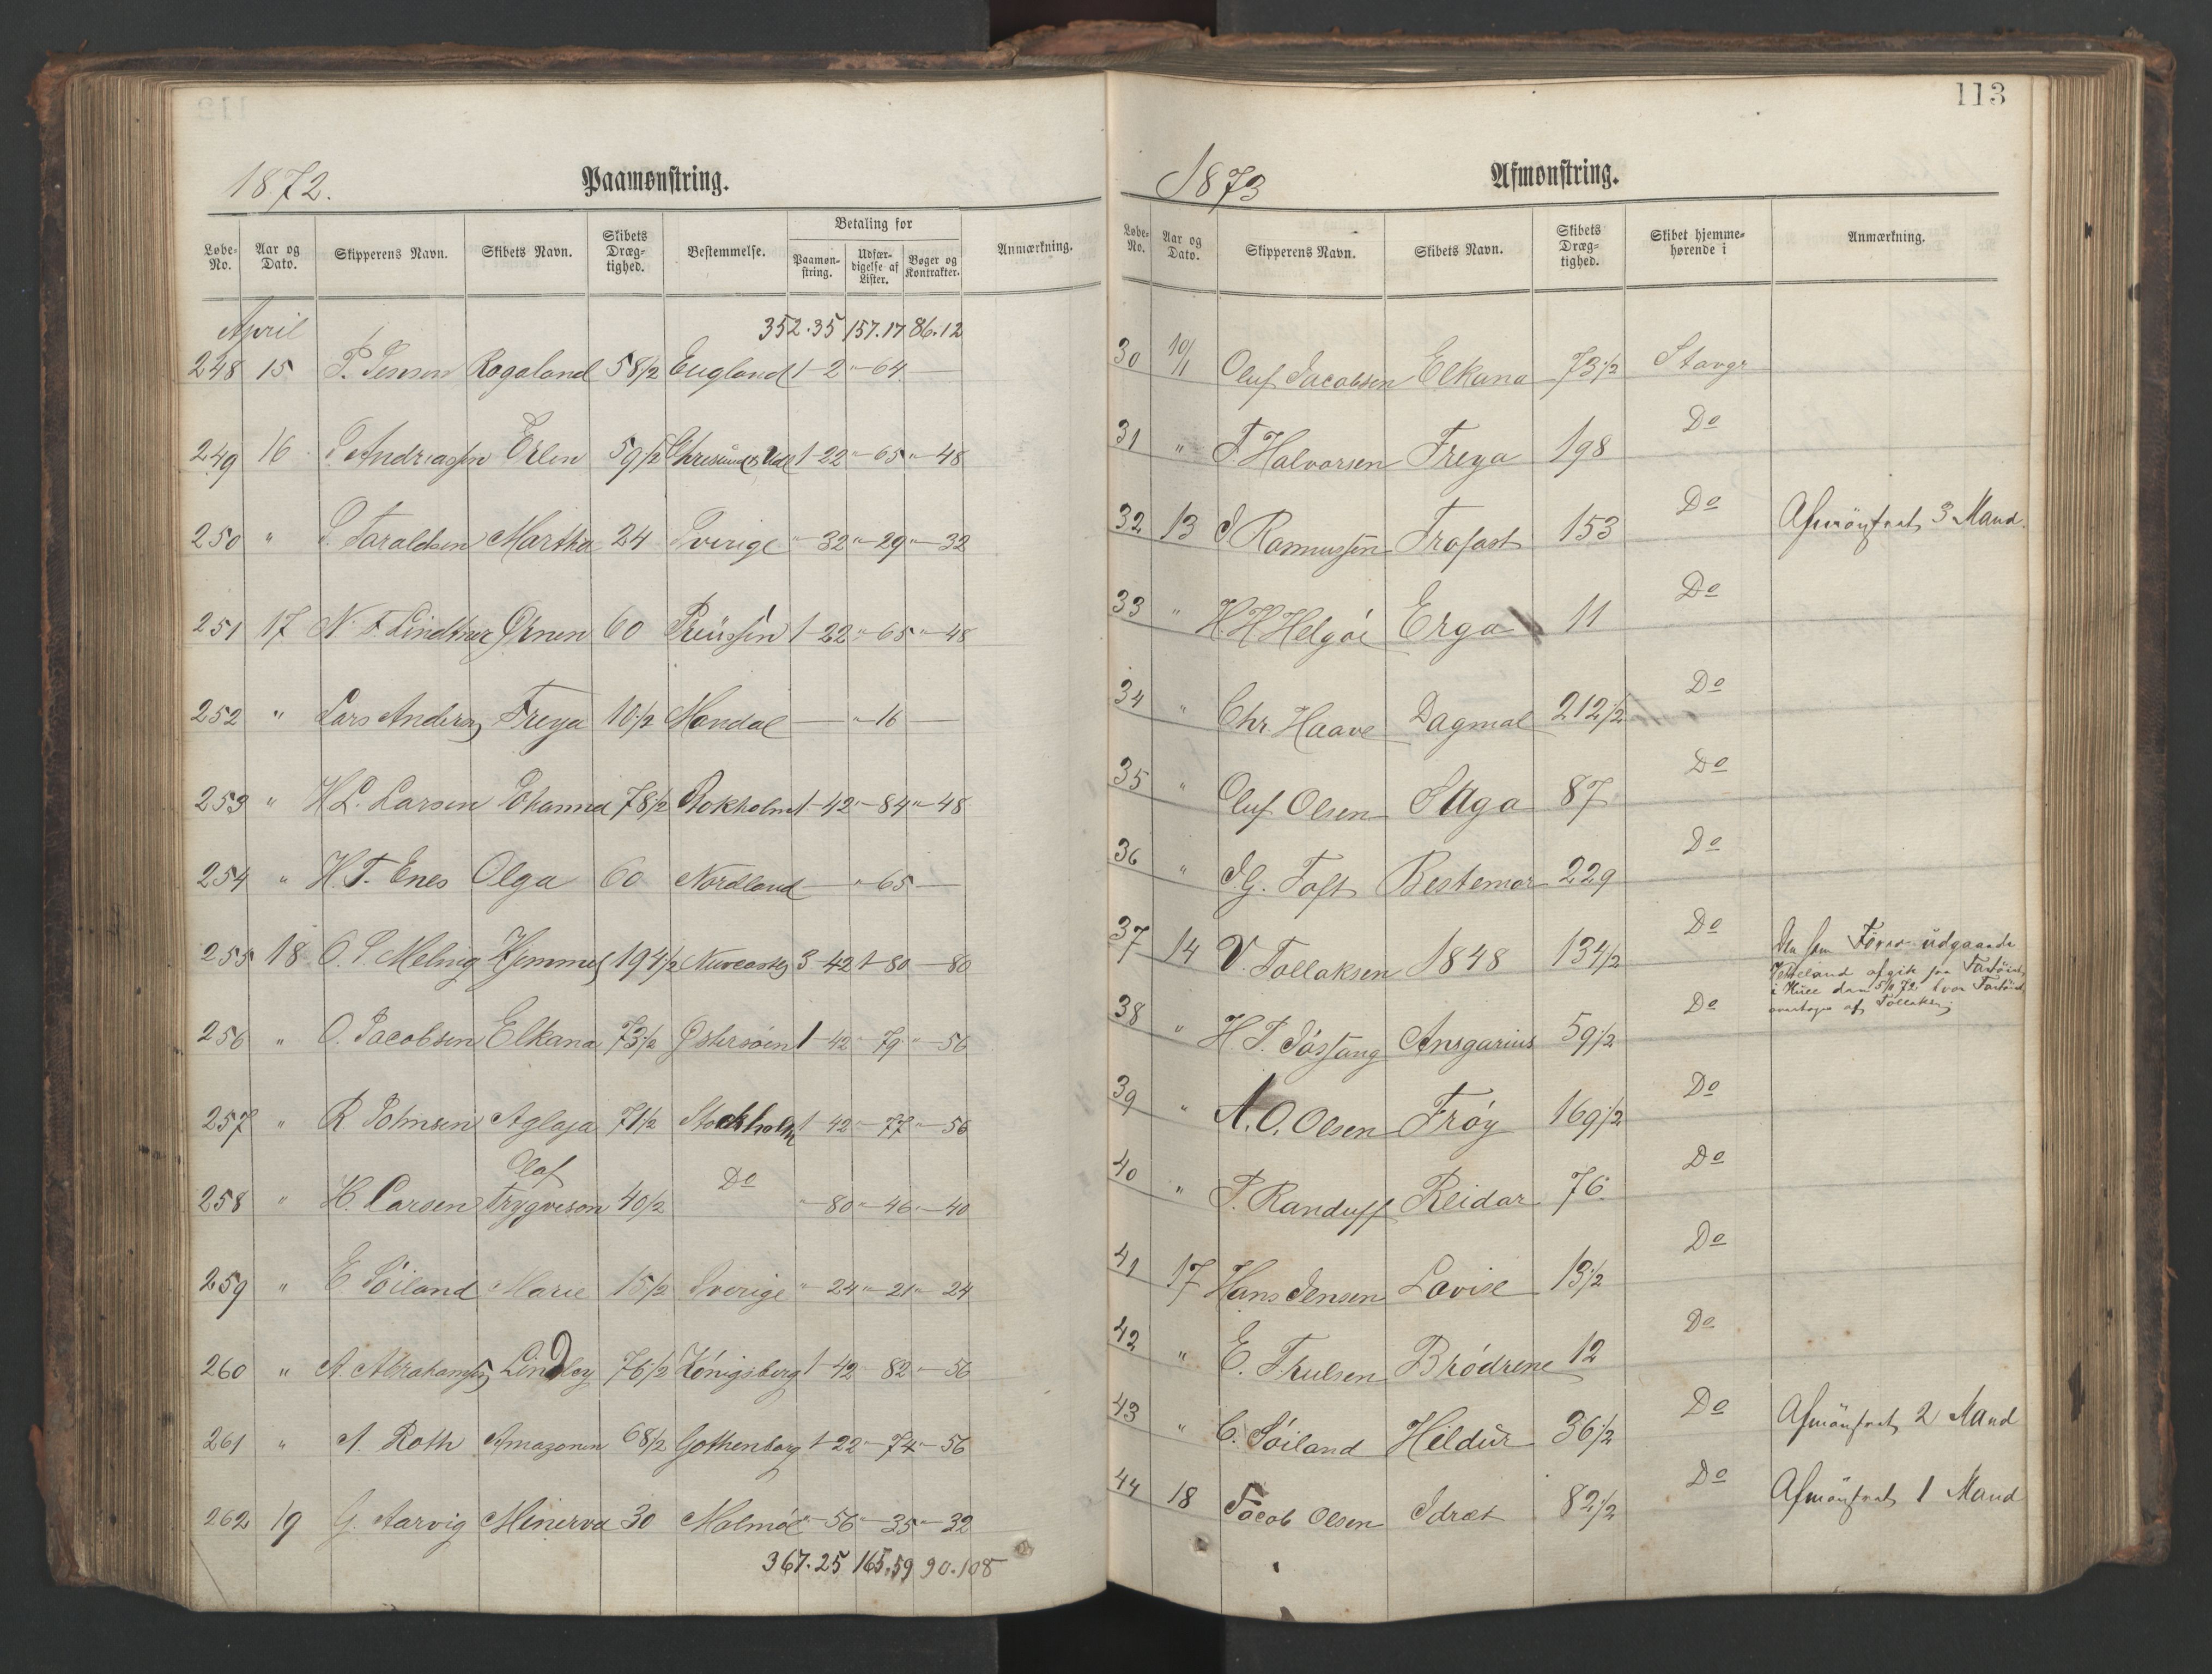 1872. Paamønstring.
Løbe-No. Aar og Dato. Skipperens Navn. Skibets Navn. Skibets Dræg-tighed. Bestemmelse. Betaling for Paamøn-string. Udfær-digelse af Lister. Bøger og Kontrakter. Anmærkning.
April 352.35 157.17 86.12
248 15 P. Jensen Rogaland 58 1/2 England 1-2 "-64 —
249 16 Andreassen Erlen 59 1/2 1-22 "-65 "-48
250 " Taraldsen Martha 24 Sverige "-32 "-29 "-32
251 17 N. F. Lindtner Ørnen 60 Preüssen 1-22 "-65 "-48
252 " Lars Andersen Freya 10 1/2 Mandal — "-16 —
253 " H L. Larsen Johanna 78 1/2 Stokholm 1-42 "-84 "-48
254 " H. T. Enes Olga 60 Nordland — "-65 —
255 18 O. S. Meling Hjemmet 194 1/2 Newcastle 3-42 1-80 "-80
256 " O. Jacobsen Elkana 73 1/2 Østersøen 1-42 "-79 "-56
257 " R Johnsen Aglaja 71 1/2 Stockholm 1-42 "-77 "-56
258 " H. Larsen Olaf Trygveson 40 1/2 Do "-80 "-46 "-40
259 " E Söiland Marie 15 1/2 Sverige "-24 "-21 "-24
260 " A. Abrahamsen Lindløy 76 1/2 Königsberg 1-42 "-82 "-56
261 " A. Roth Amazonen 68 1/2 Gothenborg 1-22 "-74 "-56
262 19 G. Aarvig Minerva 30 Malmöe "-56 "-35 "-32
367.25 165.59 90.108
113
1873 Afmønstring.
Løbe-No. Aar og Dato. Skipperens Navn. Skibets Navn. Skibets Dræg-tighed. Skibet hjemme-hørende i Anmærkning.
30 10/1 Oluf Jacobsen Elkana 73 1/2 Stavgr
31 " T. Halvorsen Freya 198 Do
32 13 J Rasmussen Trofast 153 Do Afmönstret 3 Mand.
33 " H. H Helgöe Erga 11 Do
34 " Chr. Haave Dagmal 212 1/2 Do
35 " Oluf Olsen Saga 87 Do
36 " J. G. Toft Bestemor 229 Do
37 14 V. Tollaksen 1848 134 1/2 Do Den som Förer udgaaende
afgik fra Fartöiet
i Hull den 5/11 72, hvor Fartöiet
overtoges af Tollaksen
38 " H. P. Ansgarius 59 1/2 Do
39 " A. O. Olsen Fröy 169 1/2 Do
40 " P. Randulff Reidar 76 Do
41 17 Hans Jensen Lovise 13 1/2 Do
42 " E. Thulsen Brödrene 12 Do
43 " C. Söiland Hildür 36 1/2 Do Afmönstret 2 Mand
44 18 Jacob Olsen Idræt 82 1/2 Do Afmönstret 1 Mand